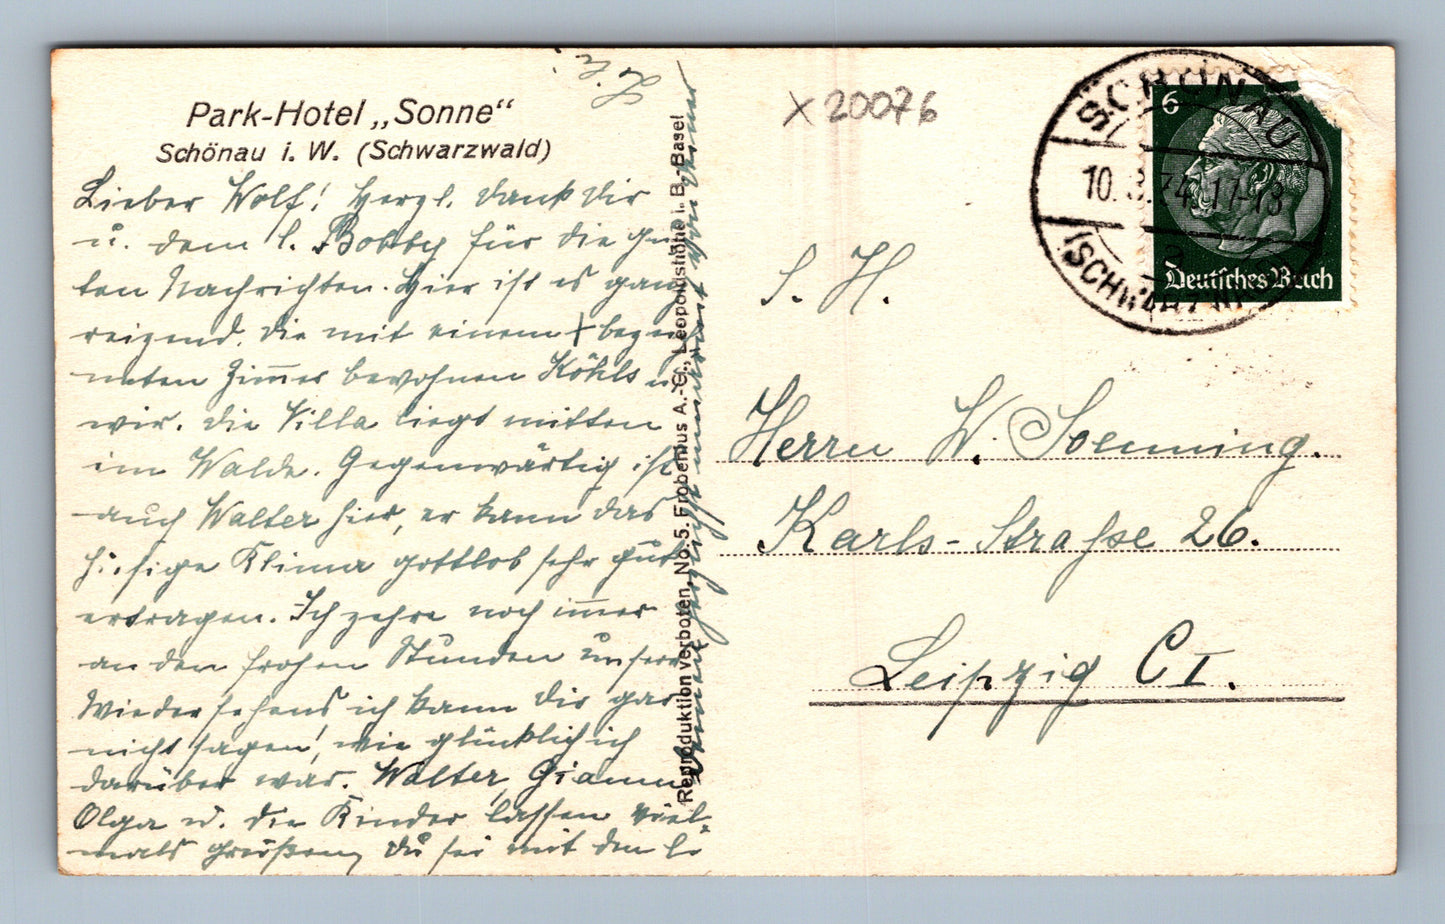 Park-Hotel „Sonne“
Schönau i. W. (Schwarzwald)
Lieber Wolf! Herzl. Dank Dir
u. dem l. Bobby für die gu-
ten Nachrichten. Hier ist es ganz
reizend. Die mit einem X bezeich-
neten Zimmer bewohnen Köhls u.
wir. Die Villa liegt mitten
im Walde. Gegenwärtig ist
auch Walter hier, er kann das
hiesige Klima gottlob sehr gut
ertragen. Ich zehre noch immer
an den frohen Stunden unseres
Wiedersehens ich kann Dir gar
nicht sagen, wie glücklich ich
darüber war. Walter,
Olga u. die Kinder lassen viel-
mals grüßen, Du sei mit den l.
herzlichst umarmt von Deiner
Reproduktion verboten, No. 5. Frobenius A.-G., Leopoldshöhe i. B.-Basel
X 20076
S. H.
Herrn W. Soenning.
Karls-Straße 26.
Leipzig C I.
SCHÖNAU
10. 3. 34. 17-18
(SCHWARZWALD)
6
Deutsches Reich